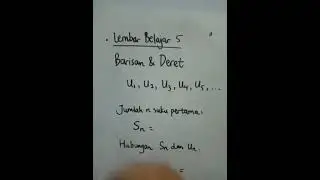 . Lembar Belajar 5
Barisan & Deret
U₁, U₂, U₃, U₄, U₅, ...
Jumlah n suku pertama:
Sₙ =
Hubungan Sₙ dan Uₙ.
=